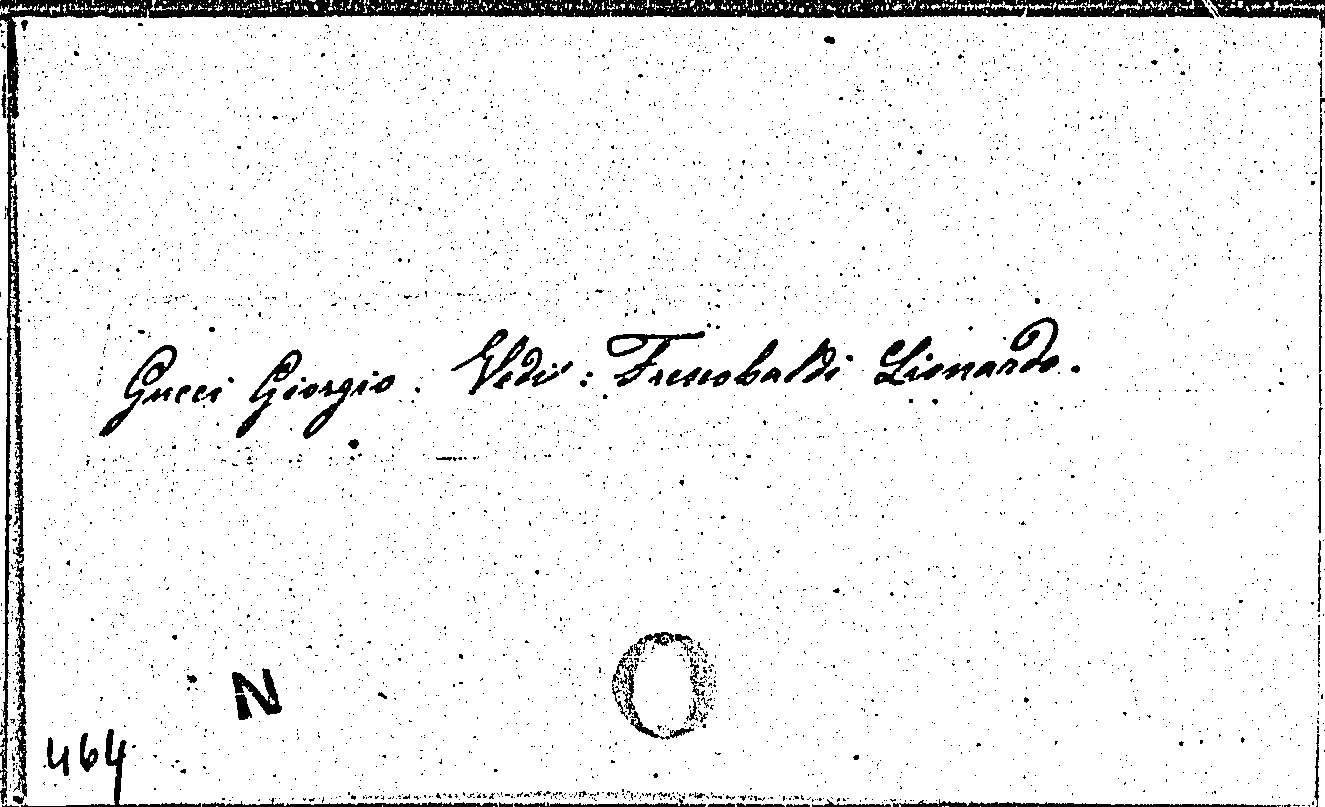 Gucci Giorgio. Vedi: Frescobaldi Lionardo.
N
464